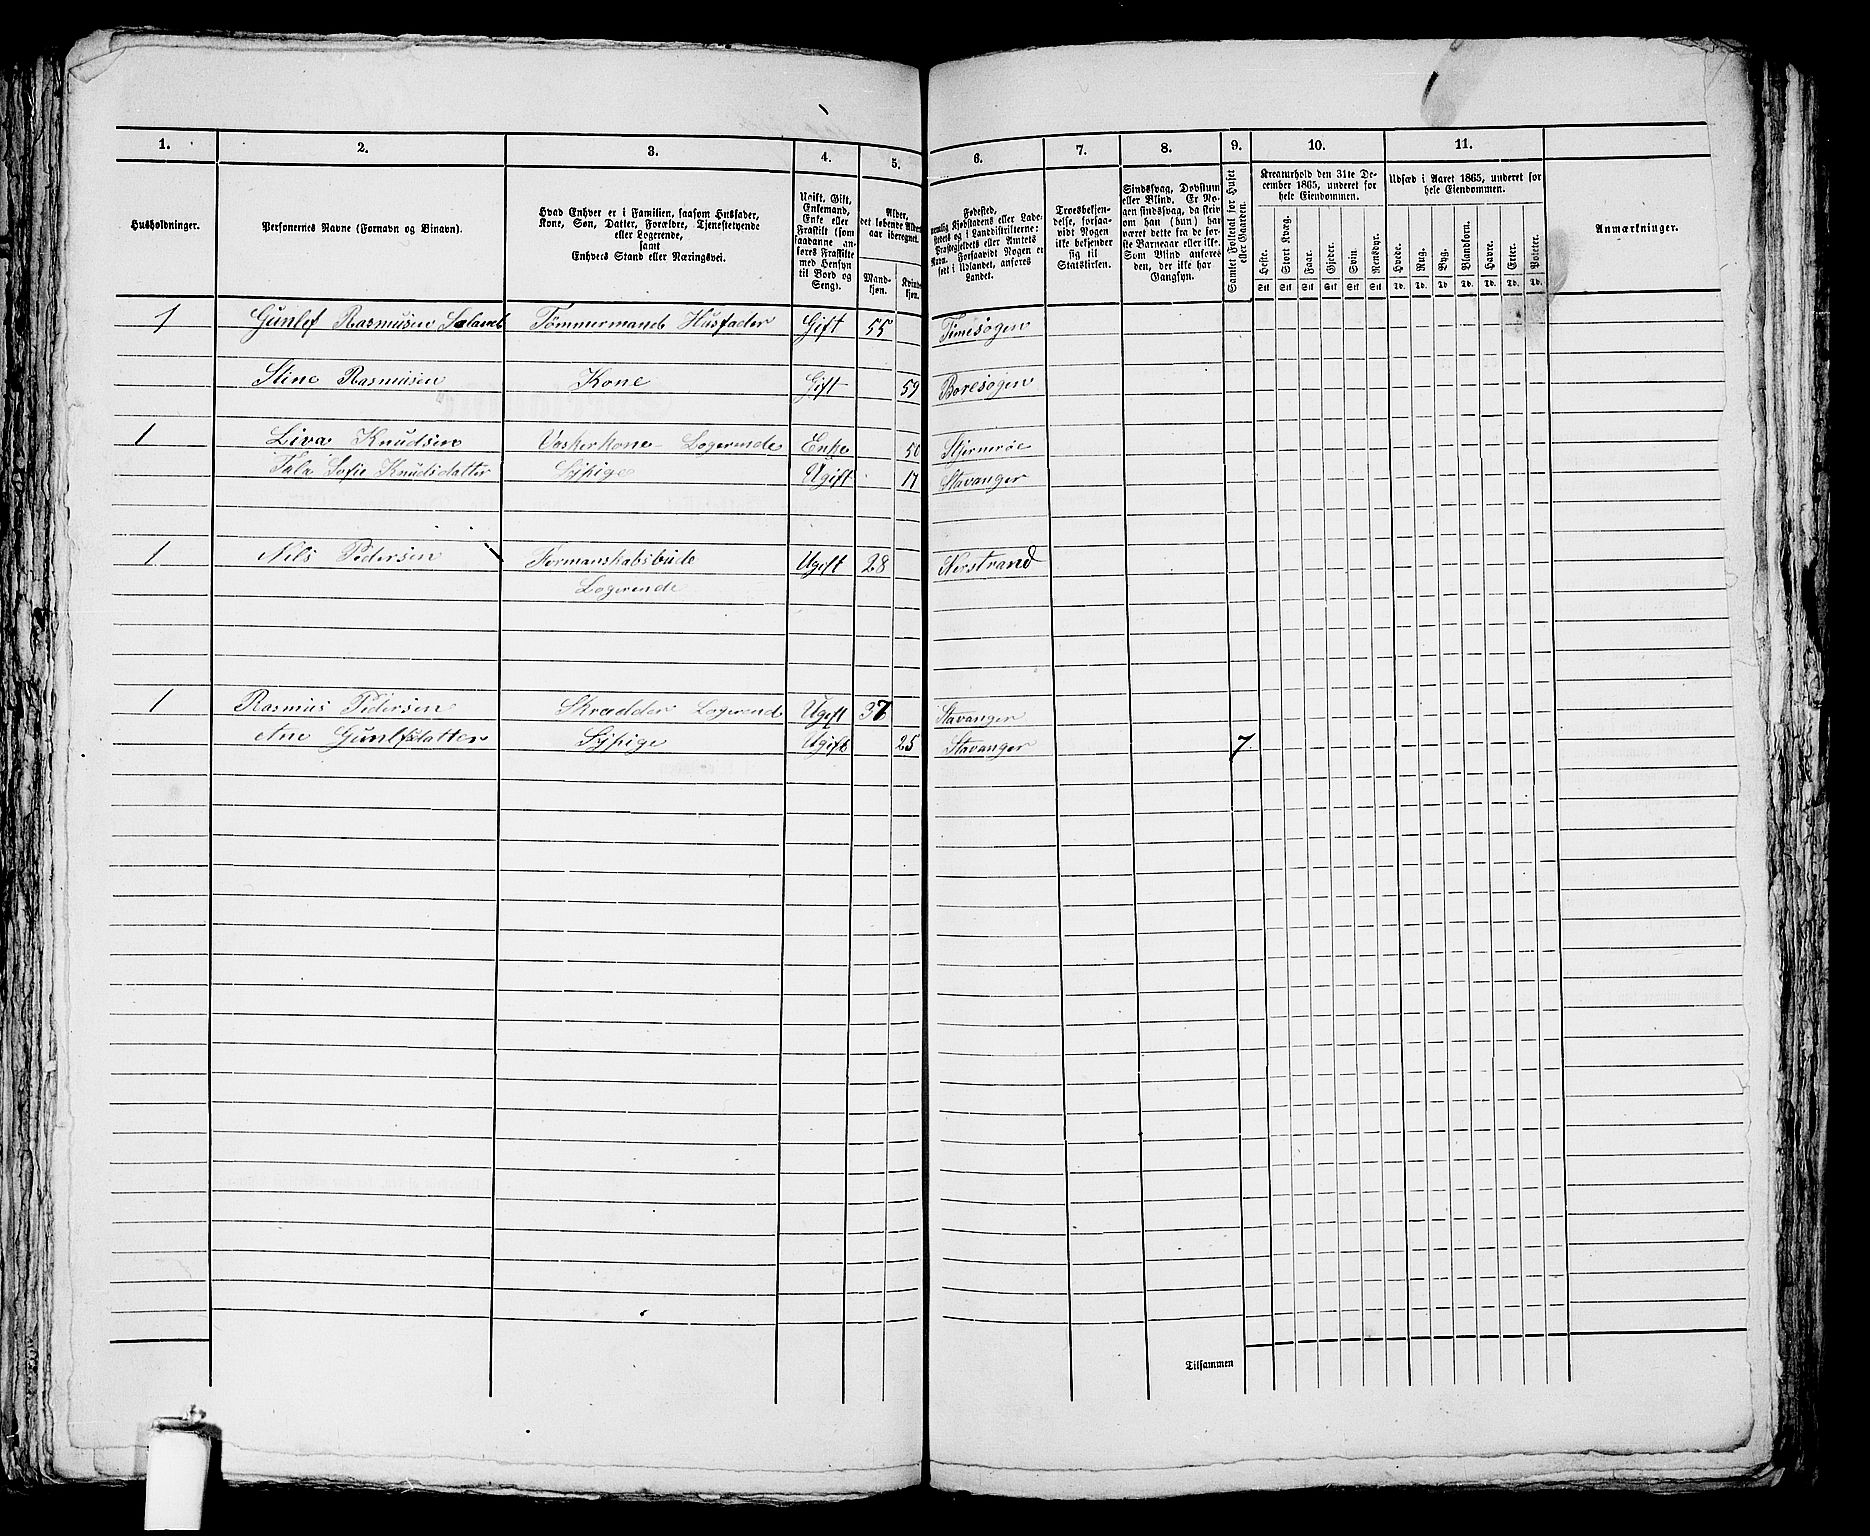 1. 2. 3. 4. 5. 6. 7. 8. 9. 10. 11.
Husholdninger.
Personernes Navne (Fornavn og Binavn).
Hvad Enhver er i Familien, saasom Husfader,
Kone, Søn, Datter, Forældre, Tjenestetyende
eller Logerende,
samt
Enhvers Stand eller Næringsvei.
Ugift, Gift,
Enkemand,
Enke eller
Fraskilt (som
saadanne an-
føres Fraskilte
med Hensyn
til Bord og
Seng).
Alder,
det løbende Alders-
aar iberegnet.
Mand-
kjøn.
Kvinde-
kjøn.
Fødested,
nemlig Kjøbstadens eller Lade-
stedets og i Landdistrikterne:
Præstegjeldets eller Amtets
Navn. Forsaavidt Nogen er
født i Udlandet, anføres
Landet.
Troesbekjen-
delse, forsaa-
vidt Nogen
ikke bekjender
sig til
Statskirken.
Sindssvag, Døvstum
eller Blind. Er No-
gen sindssvag, da skriv
om han (hun) har
været dette fra de før-
ste Barneaar eller ikke.
Som Blind anføres
den, der ikke har
Gangsyn.
Samlet Folketal for Huset
eller Gaarden.
Kreaturhold den 31te De-
cember 1865, underet for
hele Eiendommen.
Heste. Stort Kvæg. Faar. Gjeder. Svin. Rensdyr.
Stk Stk Stk Stk Stk Stk
Udsæd i Aaret 1865, underet for
hele Eiendommen.
Hvede. Rug. Byg. Blandkorn. Havre. Erter. Poteter.
Td. Td. Td. Td. Td. Td. Td.
Anmærkninger.
1 Gunlef Rasmusen Tømmermand Husfader Gift 55 Timesogen
Stine Rasmusen Kone Gift 59 Boresogen
1 Liva Knudsen Vaskerkone Logerende Enke 50 Stjernerøe
Tala Sofie Knudsdatter Sypige Ugift 17 Stavanger
1 Nils Pedersen Formanskabsbude Ugift 28 Nerstrand
Logerende
1 Rasmus Pedersen Skrædder Logerend Ugift 37 Stavanger
Ane Gunlfsdatter Sypige Ugift 25 Stavanger 7
Tilsammen